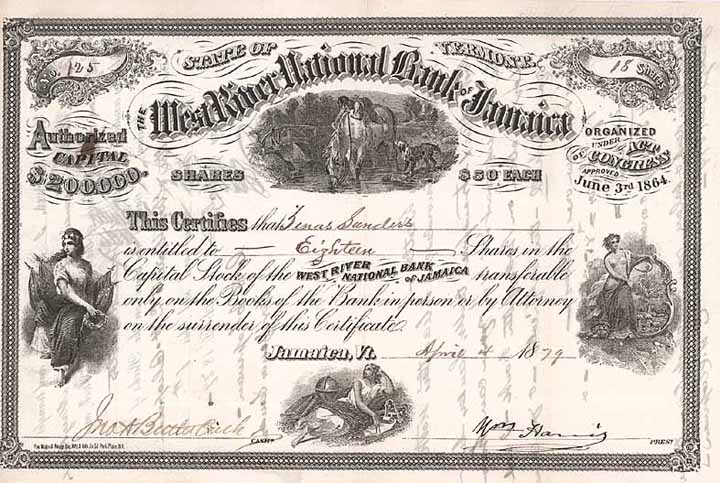 No. 125
STATE OF VERMONT.
18 Shares
THE West River National Bank OF Jamaica
Authorized CAPITAL $200,000.
ORGANIZED UNDER ACT OF CONGRESS APPROVED June 3rd 1864.
SHARES $50 EACH
This Certifies that Zenas Sanders
is entitled to Eighteen Shares in the
Capital Stock of the WEST RIVER NATIONAL BANK OF JAMAICA transferable
only on the Books of the Bank in person or by Attorney
on the surrender of this Certificate.
Jamaica, Vt. April 4 1879
CASHR.
Wm Harris PREST.